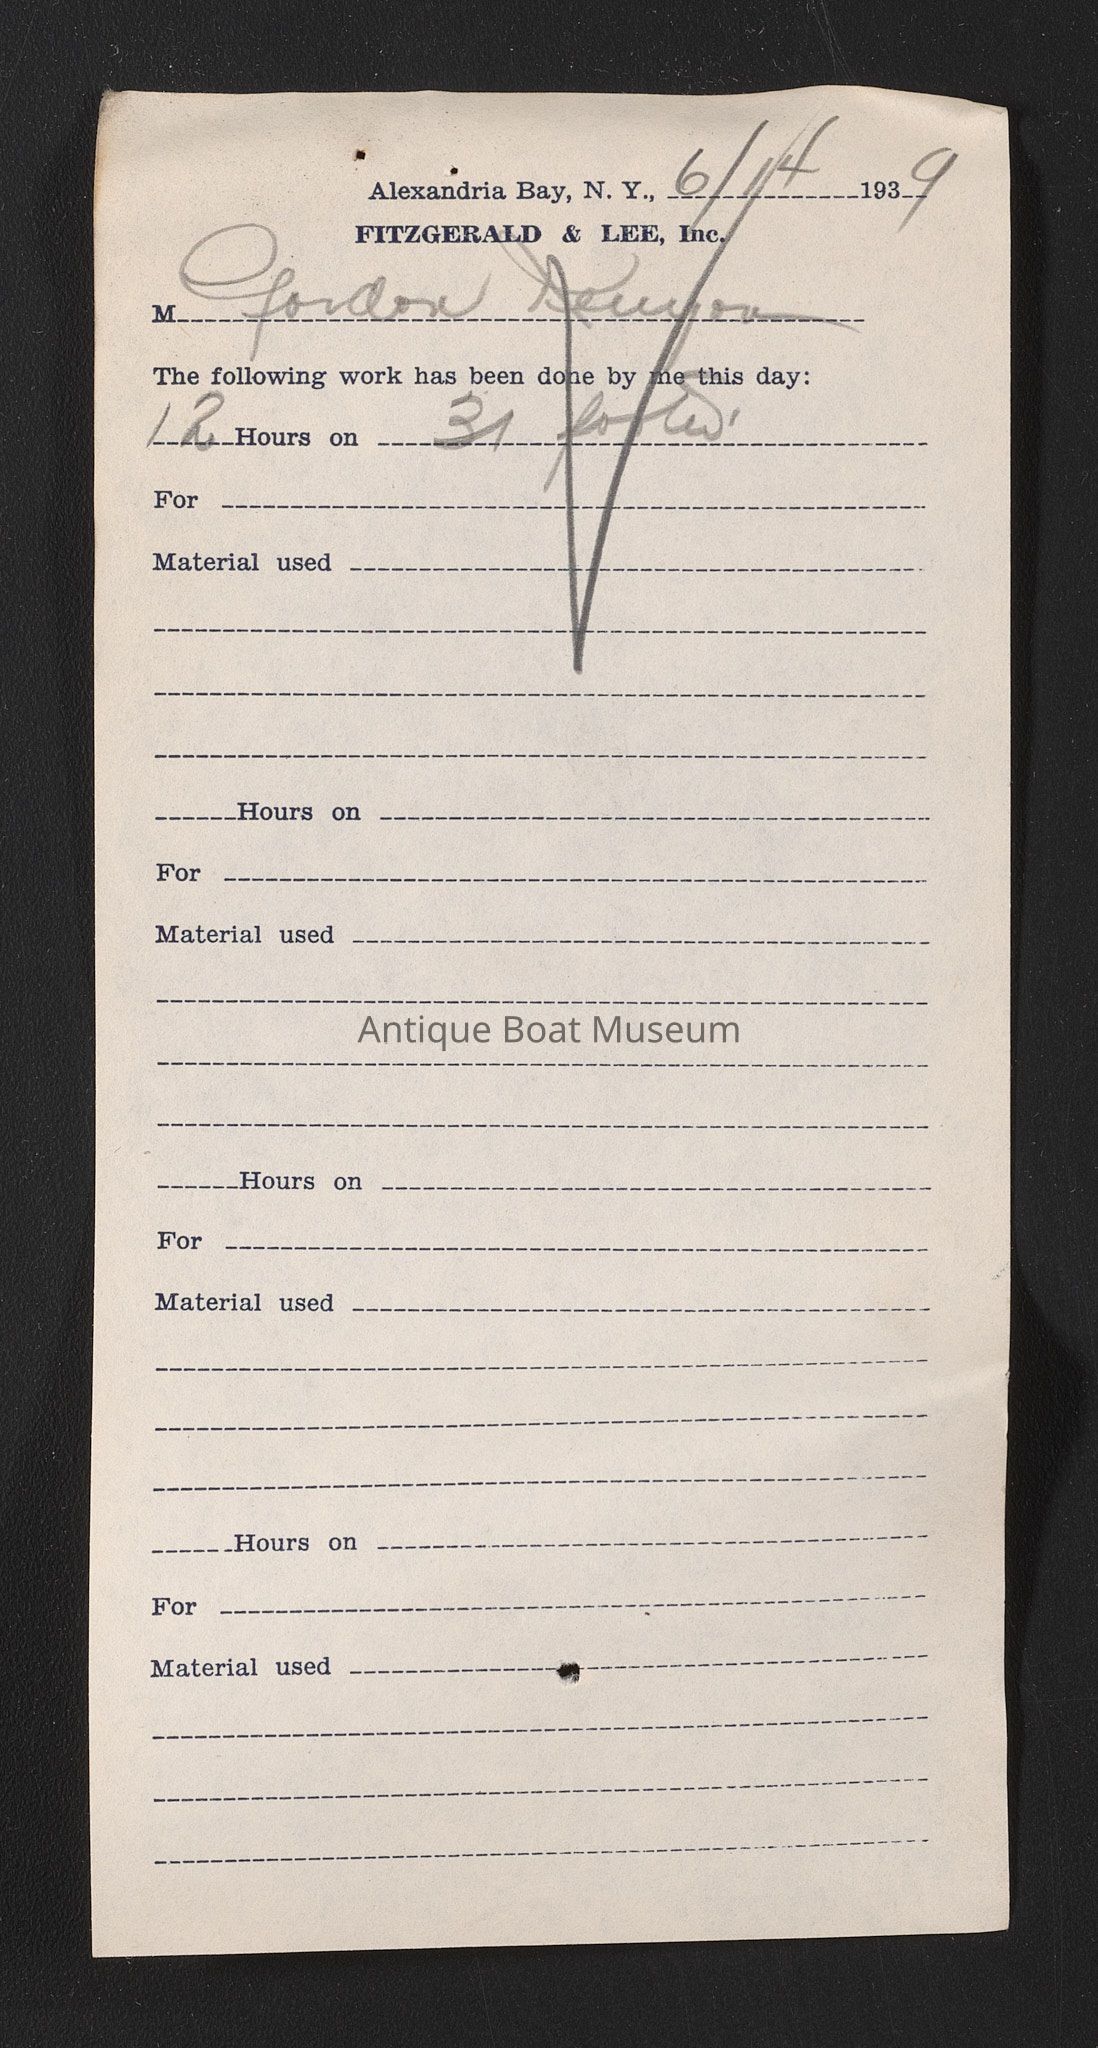 Alexandria Bay, N. Y., 6/14 1939
FITZGERALD & LEE, Inc.
M Gordon Kenyon
The following work has been done by me this day:
12 Hours on 31 footer
For
Material used
Hours on
For
Material used
Antique Boat Museum
Hours on
For
Material used
Hours on
For
Material used